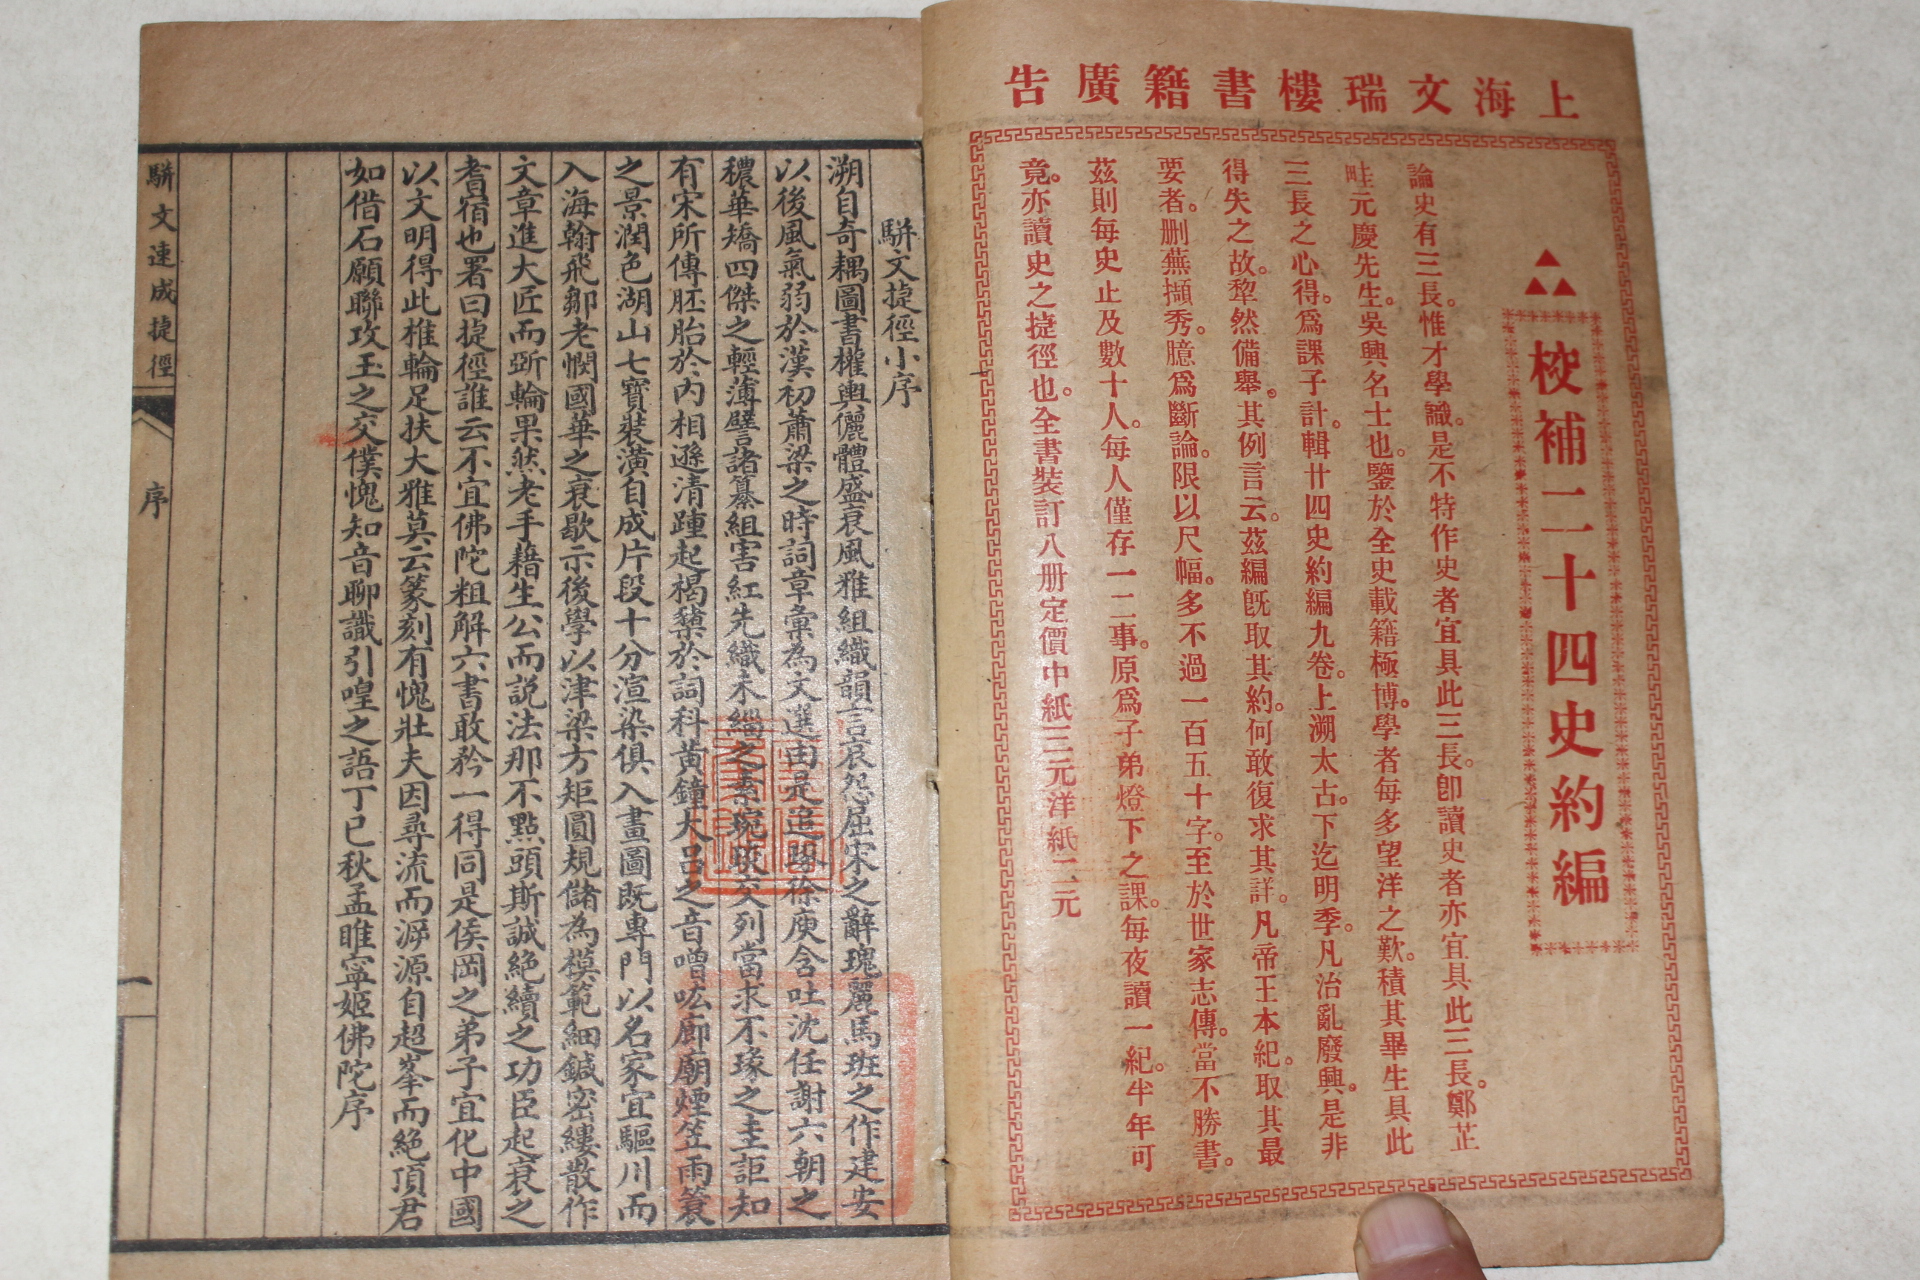 上海文瑞樓書籍廣告
校補二十四史約編
論史有三長。惟才學識。是不特作史者宜具此三長。卽讀史者亦宜具此三長。鄭芷
畦元慶先生。吳興名士也。鑒於全史載籍極博。學者每多望洋之歎。積其畢生具此
三長之心得。爲課子計。輯廿四史約編九卷。上溯太古。下迄明季。凡治亂廢興。是非
得失之故。犂然備舉。其例言云。茲編旣取其約。何敢復求其詳。凡帝王本紀。取其最
要者。删蕪擷秀。臆爲斷論。限以尺幅。多不過一百五十字。至於世家志傳。當不勝書。
茲則每史止及數十人。每人僅存一二事。原爲子弟燈下之課。每夜讀一紀。半年可
竟。亦讀史之捷徑也。全書裝訂八册定價中紙三元洋紙二元
駢文捷徑小序
溯自奇耦圖書權輿儷體盛衰風雅組織韻言哀怨屈宋之辭瑰麗馬班之作建安
以後風氣弱於漢初蕭梁之時詞章彙為文選由是追踪徐庾含吐沈任謝六朝之
穠華矯四傑之輕薄譬諸纂組害紅先織未緇之素琬琰交列當求不瑑之圭詎知
有宋所傳胚胎於內相遜清踵起楬櫫於詞科黃鐘大呂之音噌吰廊廟煙笠雨簑
之景潤色湖山七寶裝潢自成片段十分渲染俱入畫圖既專門以名家宜驅川而
入海翰飛鄒老憫國華之衰歇示後學以津梁方矩圓規儲為模範細鍼密縷散作
文章進大匠而斵輪果然老手藉生公而説法那不點頭斯誠絕續之功臣起衰之
耆宿也署曰捷徑誰云不宜佛陀粗解六書敢矜一得同是侯岡之弟子宜化中國
以文明得此椎輪足扶大雅莫云篆刻有愧壯夫因尋流而溯源自超峯而絕頂君
如借石願聯攻玉之交僕愧知音聊識引喤之語丁巳秋孟睢寧姬佛陀序
駢文速成捷徑
序
一